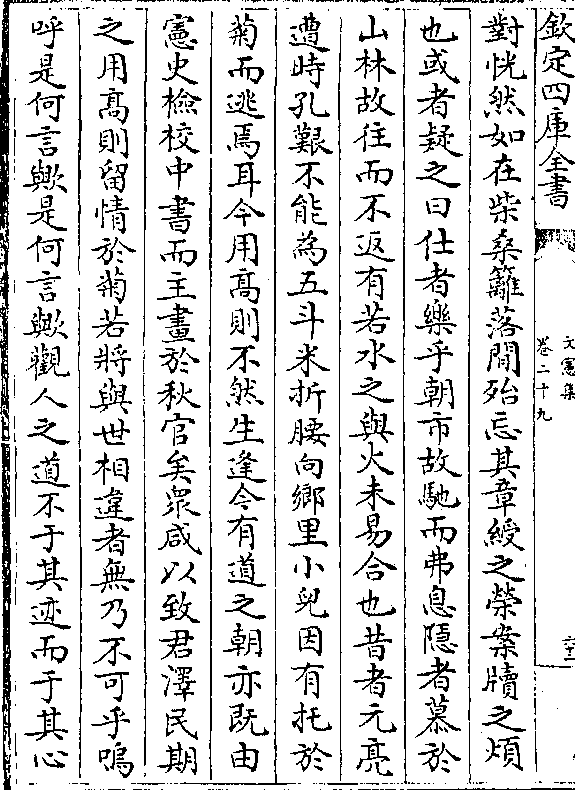 欽定四庫全書
文憲集
卷二十九
對恍然如在柴桑籬落間殆忘其章綬之榮案牘之煩
也或者疑之曰仕者樂乎朝市故馳而弗息隱者慕於
山林故往而不返有若水之與火未易合也昔者元亮
遭時孔艱不能為五斗米折腰向鄉里小兒因有托於
菊而逃焉耳今用髙則不然生逢今有道之朝亦既由
憲史檢校中書而主畫於秋官矣衆咸以致君澤民期
之用髙則留情於菊若將與世相違者無乃不可乎嗚
呼是何言歟是何言歟觀人之道不于其迹而于其心